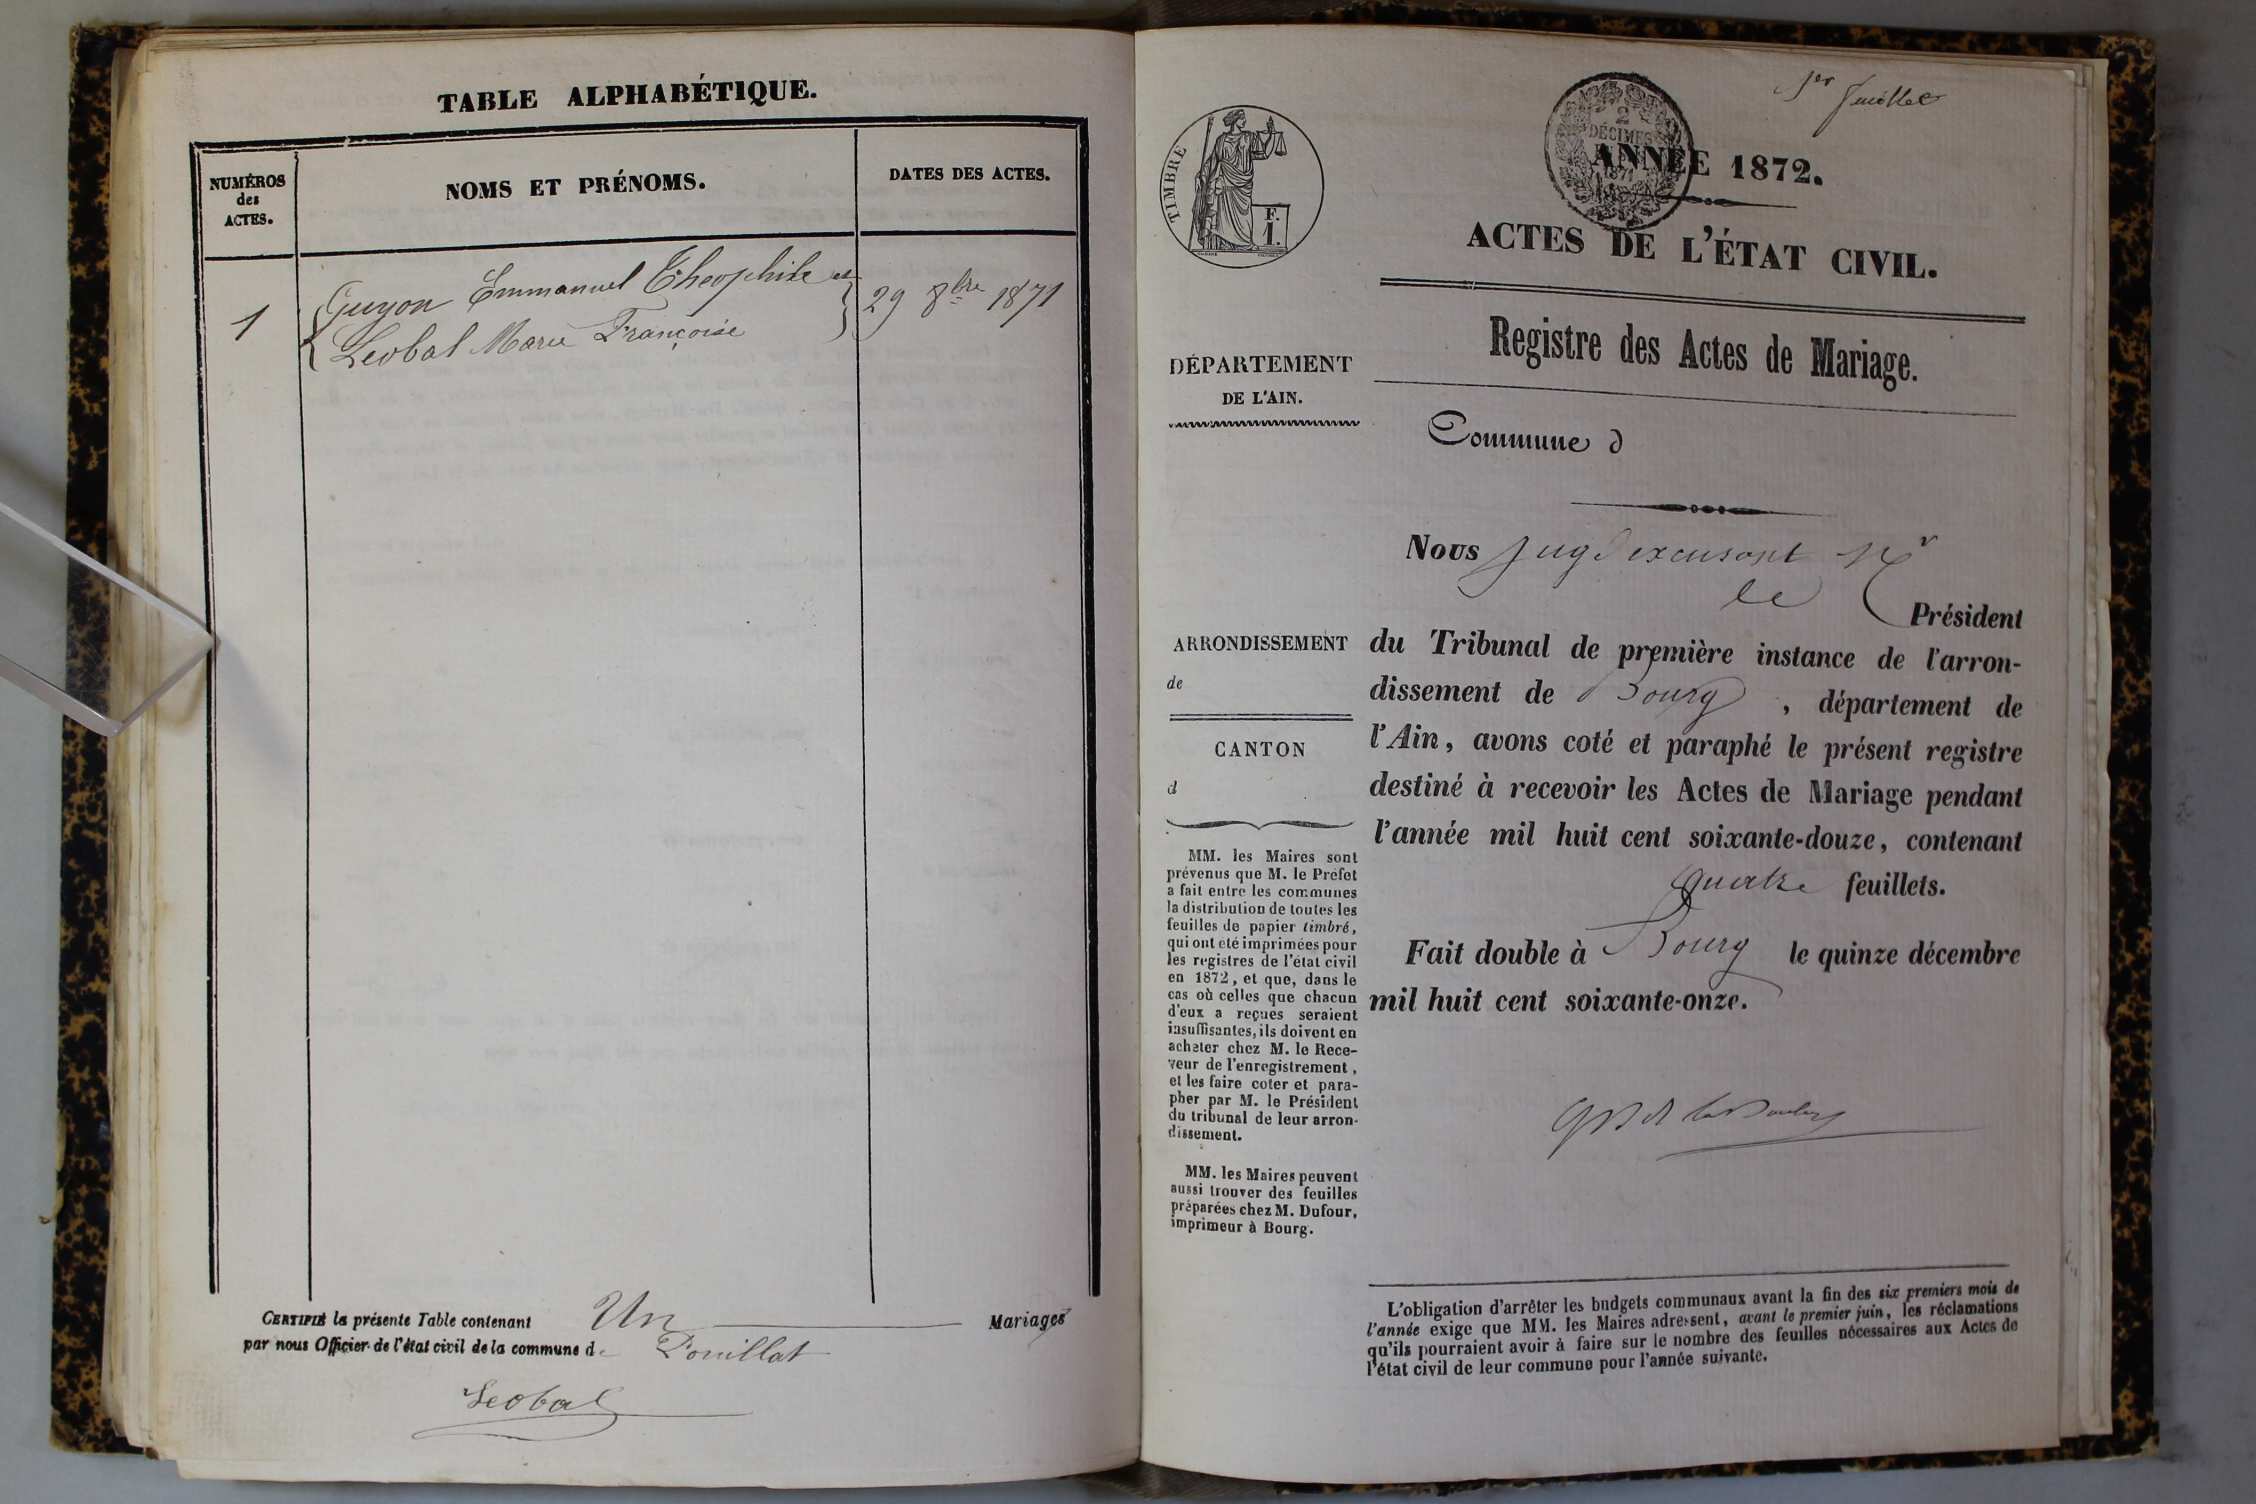 TABLE ALPHABÉTIQUE.
NUMÉROS
des
ACTES.
NOMS ET PRÉNOMS.
DATES DES ACTES.
1
Guyon Emmanuel Theophile et
Leobal Marie Françoise
29 8bre 1871
CERTIFIÉ la présente Table contenant Un Mariages
par nous Officier de l'état civil de la commune de Pouillat
Leobal
1er feuillet
TIMBRE
F.
1.
2
DÉCIMES
1871
ANNÉE 1872.
ACTES DE L'ÉTAT CIVIL.
Registre des Actes de Mariage.
DÉPARTEMENT
DE L'AIN.
Commune d
Nous juge excusant Mr
le Président
du Tribunal de première instance de l'arron-
dissement de Bourg, département de
l'Ain, avons coté et paraphé le présent registre
destiné à recevoir les Actes de Mariage pendant
l'année mil huit cent soixante-douze, contenant
quatre feuillets.
Fait double à Bourg le quinze décembre
mil huit cent soixante-onze.
ARRONDISSEMENT
de
CANTON
d
MM. les Maires sont
prévenus que M. le Préfet
a fait entre les communes
la distribution de toutes les
feuilles de papier timbré,
qui ont été imprimées pour
les registres de l'état civil
en 1872, et que, dans le
cas où celles que chacun
d'eux a reçues seraient
insuffisantes, ils doivent en
acheter chez M. le Rece-
veur de l'enregistrement,
et les faire coter et para-
pher par M. le Président
du tribunal de leur arron-
dissement.
MM. les Maires peuvent
aussi trouver des feuilles
préparées chez M. Dufour,
imprimeur à Bourg.
L'obligation d'arrêter les budgets communaux avant la fin des six premiers mois de
l'année exige que MM. les Maires adressent, avant le premier juin, les réclamations
qu'ils pourraient avoir à faire sur le nombre des feuilles nécessaires aux Actes de
l'état civil de leur commune pour l'année suivante.